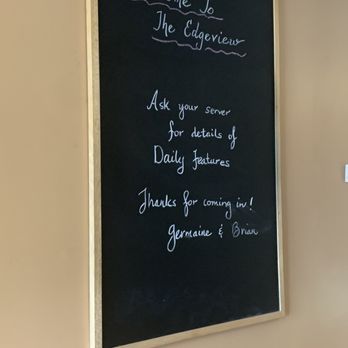 To
The Edgeview
Ask your server
for details of
Daily features
Thanks for coming in!
Germaine & Brian